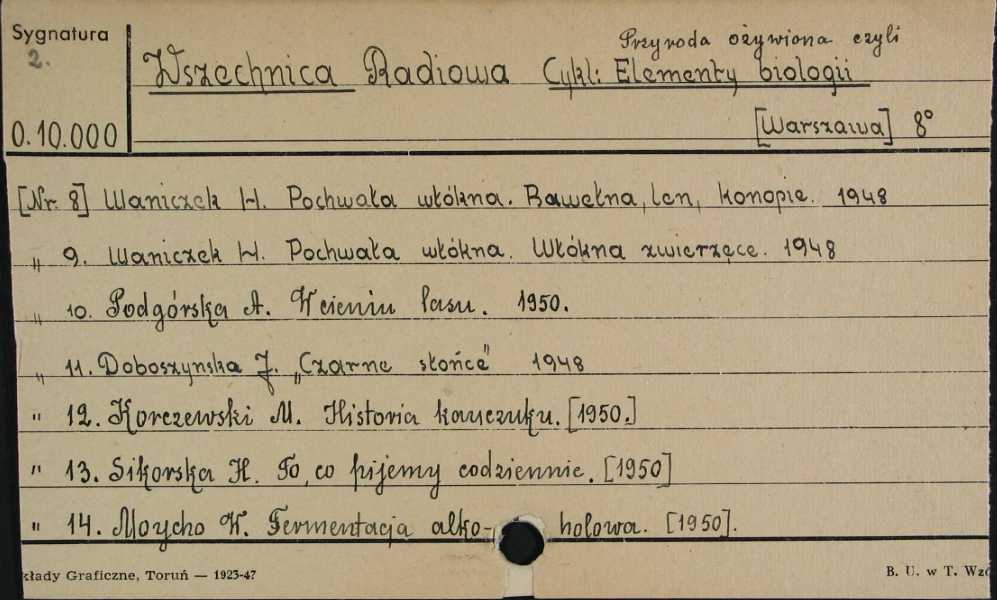 Sygnatura
2.
Przyroda ożywiona czyli
Wszechnica Radiowa Cykl: Elementy biologii
[Warszawa] 8°
0.10.000
[Nr. 8] Waniczek H. Pochwała włókna. Bawełna, len, konopie. 1948
" 9. Waniczek H. Pochwała włókna. Włókna zwierzęce. 1948
" 10. Podgórska A. W cieniu lasu. 1950.
" 11. Doboszynska J. „Czarne słońce" 1948
" 12. Korczewski M. Historia kauczuku. [1950.]
" 13. Sikorska H. To, co pijemy codziennie. [1950]
" 14. Moycho W. Fermentacja alko- holowa. [1950].
kłady Graficzne, Toruń — 1923-47 B. U. w T. Wzó